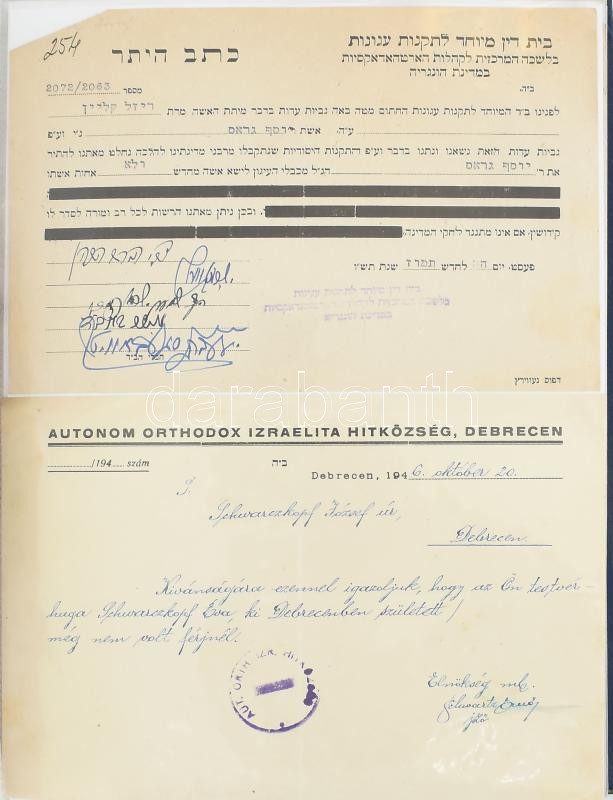 254
בית דין מיוחד לתקנות עגונות
בלשכה המרכזית לקהלות הארטהאדאקסיות
במדינת הונגריה
כתב היתר
בזה.
מספר 2072/2063
לפנינו ב״ד המיוחד לתקנות עגונות החתום מטה באה גביות עדות בדבר מיתת האשה מרת רייזל קליין
ע״ה. אשת ר׳ יוסף גראס נ״י וע״פ
גביות עדות הזאת נשאנו ונתנו בדבר וע״פ התקנות היסודיות שנתקבלו מרבני מדינתינו להלכה נחלט מאתנו להתיר
את ר׳ יוסף גראס הנ״ל מכבלי העיגון לישא אשה מחדש ולא אחות אשתו
ובכן ניתן מאתנו הרשות לכל רב ומורה לסדר לו
קידושין, אם אינו מתנגד לחקי המדינה.
פעסט, יום לחדש תמוז שנת תש״ו
בית דין מיוחד לתקנות עגונות
מלשכה המרכזית לקהלות הארטהאדאקסיות
במדינת הונגריה
חברי הביד
דפוס געווירץ
darabanth
AUTONOM ORTHODOX IZRAELITA HITKÖZSÉG, DEBRECEN
/194 szám
ב״ה
Debrecen, 1946. október 20.
Schwarczkopf József úr,
Debrecen.
Kivánságára ezennel igazoljuk, hogy az Ön testvér-
huga Schwarczkopf Éva, ki Debrecenben született/
még nem volt férjnél.
AUT. ORTH. IZR. HITK
Elnökség mb.
Schwartz Ernő